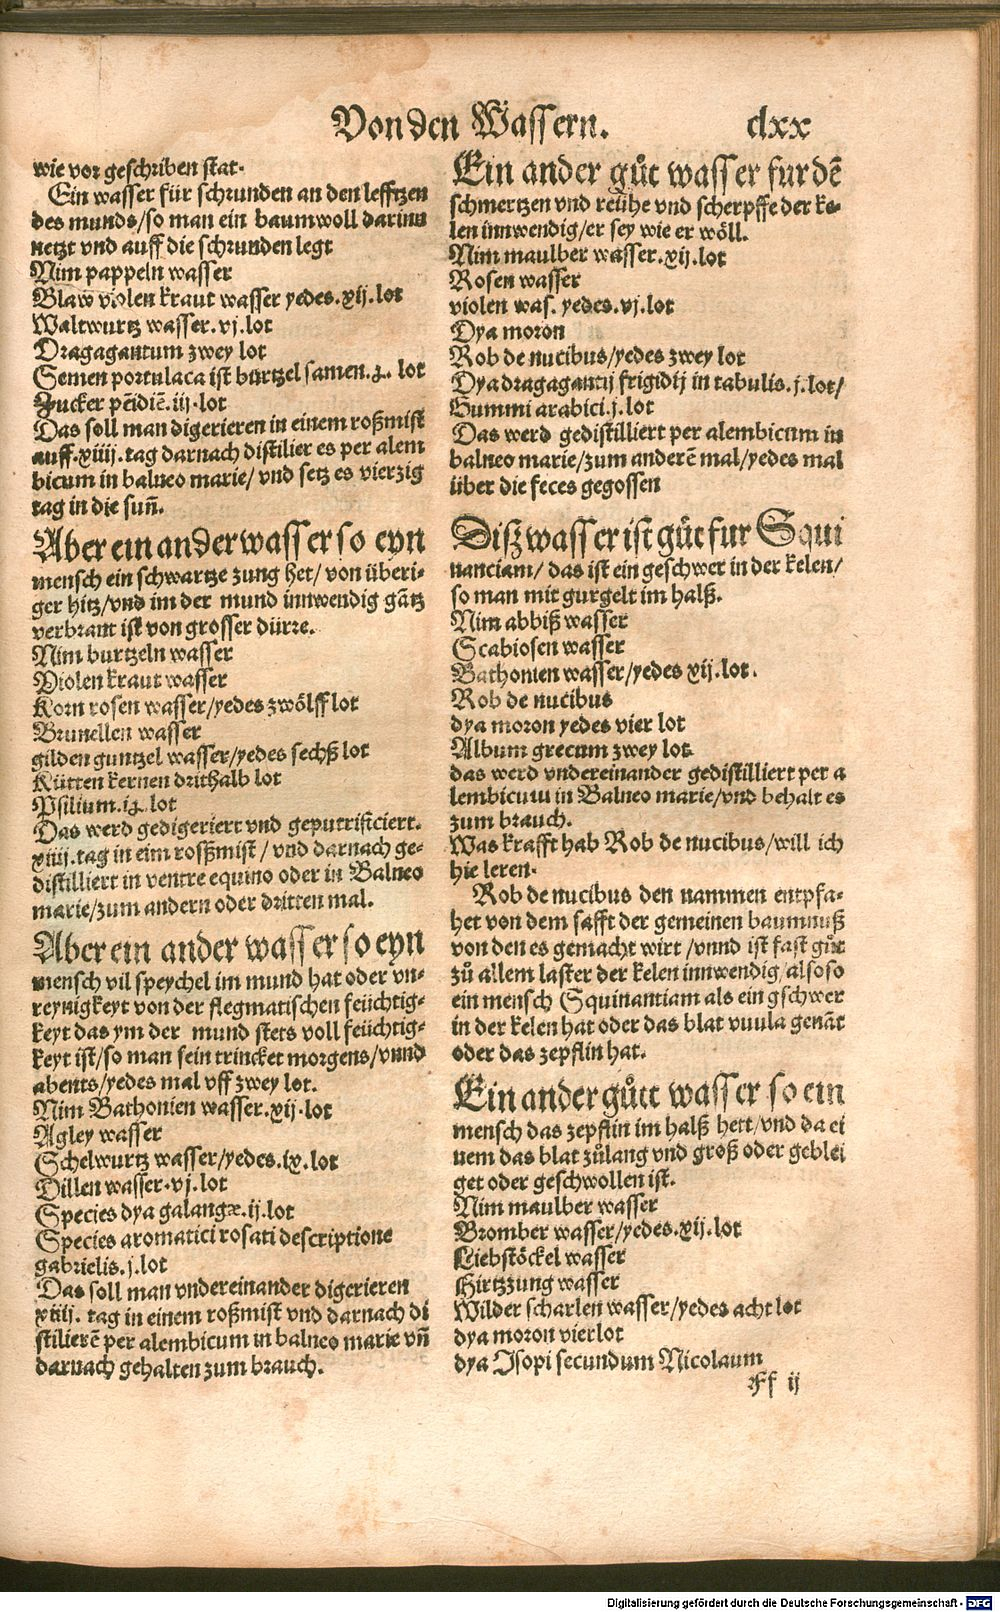 Von den Wassern. clxx
wie vor geschriben stat.
Ein wasser für schrunden an den lefftzen
des munds/so man ein baumwoll darinn
netzt vnd auff die schrunden legt
Nim pappeln wasser
Blaw violen kraut wasser yedes.xij.lot
Waltwurtz wasser.vj.lot
Dragagantum zwey lot
Semen portulaca ist burtzel samen.ʒ. lot
Zucker pēidiē.iij.lot
Das soll man digerieren in einem roßmist
auff.xiiij.tag darnach distilier es per alem
bicum in balneo marie/ vnd setz es vierzig
tag in die suñ.
Aber ein ander wasser so eyn
mensch ein schwartze zung het/ von überi⸗
ger hitz/vnd im der mund innwendig gātz
verbrant ist von grosser dürre.
Nim burtzeln wasser
Violen kraut wasser
Korn rosen wasser/yedes zwölff lot
Brunellen wasser
gilden guntzel wasser/yedes sechß lot
Kütten kernen drithalb lot
Psilium.iʒ.lot
Das werd gedigeriert vnd geputrificiert.
xiiij.tag in eim rosßmist / vnd darnach ge⸗
distilliert in ventre equino oder in Balneo
marie/zum andern oder dritten mal.
Aber ein ander wasser so eyn
mensch vil speychel im mund hat oder vn⸗
reynigkeyt von der flegmatischen feüchtig⸗
keyt das ym der mund stets voll feüchtig⸗
keyt ist/so man sein trincket morgens/vnnd
abents/yedes mal vff zwey lot.
Nim Bathonien wasser.xij.lot
Agley wasser
Schelwurtz wasser/yedes.ix.lot
Dillen wasser.vj.lot
Species dya galangæ.ij.lot
Species aromatici rosati descriptione
gabrielis.j.lot
Das soll man vndereinander digerieren
xiiij. tag in einem roßmist vnd darnach di
stilierē per alembicum in balneo marie vñ
darnach gehalten zum brauch.
Ein ander gůt wasser fur dē
schmertzen vnd reühe vnd scherpffe der ke⸗
len innwendig/er sey wie er wöll.
Nim maulber wasser.xij.lot
Rosen wasser
violen was. yedes.vj.lot
Dya moron
Rob de nucibus/yedes zwey lot
Dya dragagantij frigidij in tabulis.j.lot/
Gummi arabici.j.lot
Das werd gedistilliert per alembicum in
balneo marie/zum anderē mal/yedes mal
über die feces gegossen
Disz wasser ist gůt fur Squi
nanciam/ das ist ein geschwer in der kelen/
so man mit gurgelt im halß.
Nim abbiß wasser
Scabiosen wasser
Bathonien wasser/yedes xij.lot.
Rob de nucibus
dya moron yedes vier lot
Album grecum zwey lot
das werd vndereinander gedistilliert per a
lembicum in Balneo marie/vnd behalt es
zum brauch.
Was krafft hab Rob de nucibus/will ich
hie leren.
Rob de nucibus den nammen entpfa⸗
het von dem safft der gemeinen baumnuß
von den es gemacht wirt /vnnd ist fast gůt
zů allem laster der kelen innwendig/also so
ein mensch Squinantiam als ein gschwer
in der kelen hat oder das blat vuula genāt
oder das zepflin hat.
Ein ander gůtt wasser so ein
mensch das zepflin im halß hett/vnd da ei
nem das blat zůlang vnd groß oder geblei
get oder geschwollen ist.
Nim maulber wasser
Bromber wasser/yedes.xij.lot
Liebstöckel wasser
Hirtzzung wasser
Wilder scharlen wasser/yedes acht lot
dya moron vier lot
dya Isopi secundum Nicolaum
Ff ij
Digitalisierung gefördert durch die Deutsche Forschungsgemeinschaft - DFG